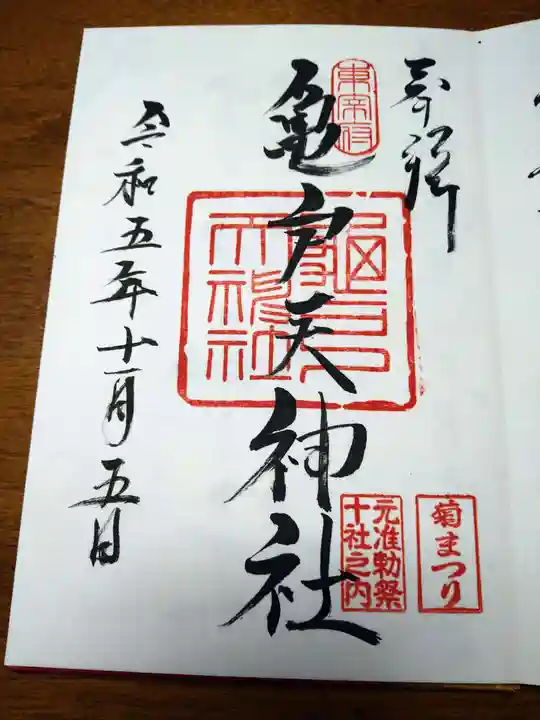 奉拝
亀戸天神社
令和五年十一月五日
東宰府
亀戸天神社
菊まつり
元准勅祭
十社之内